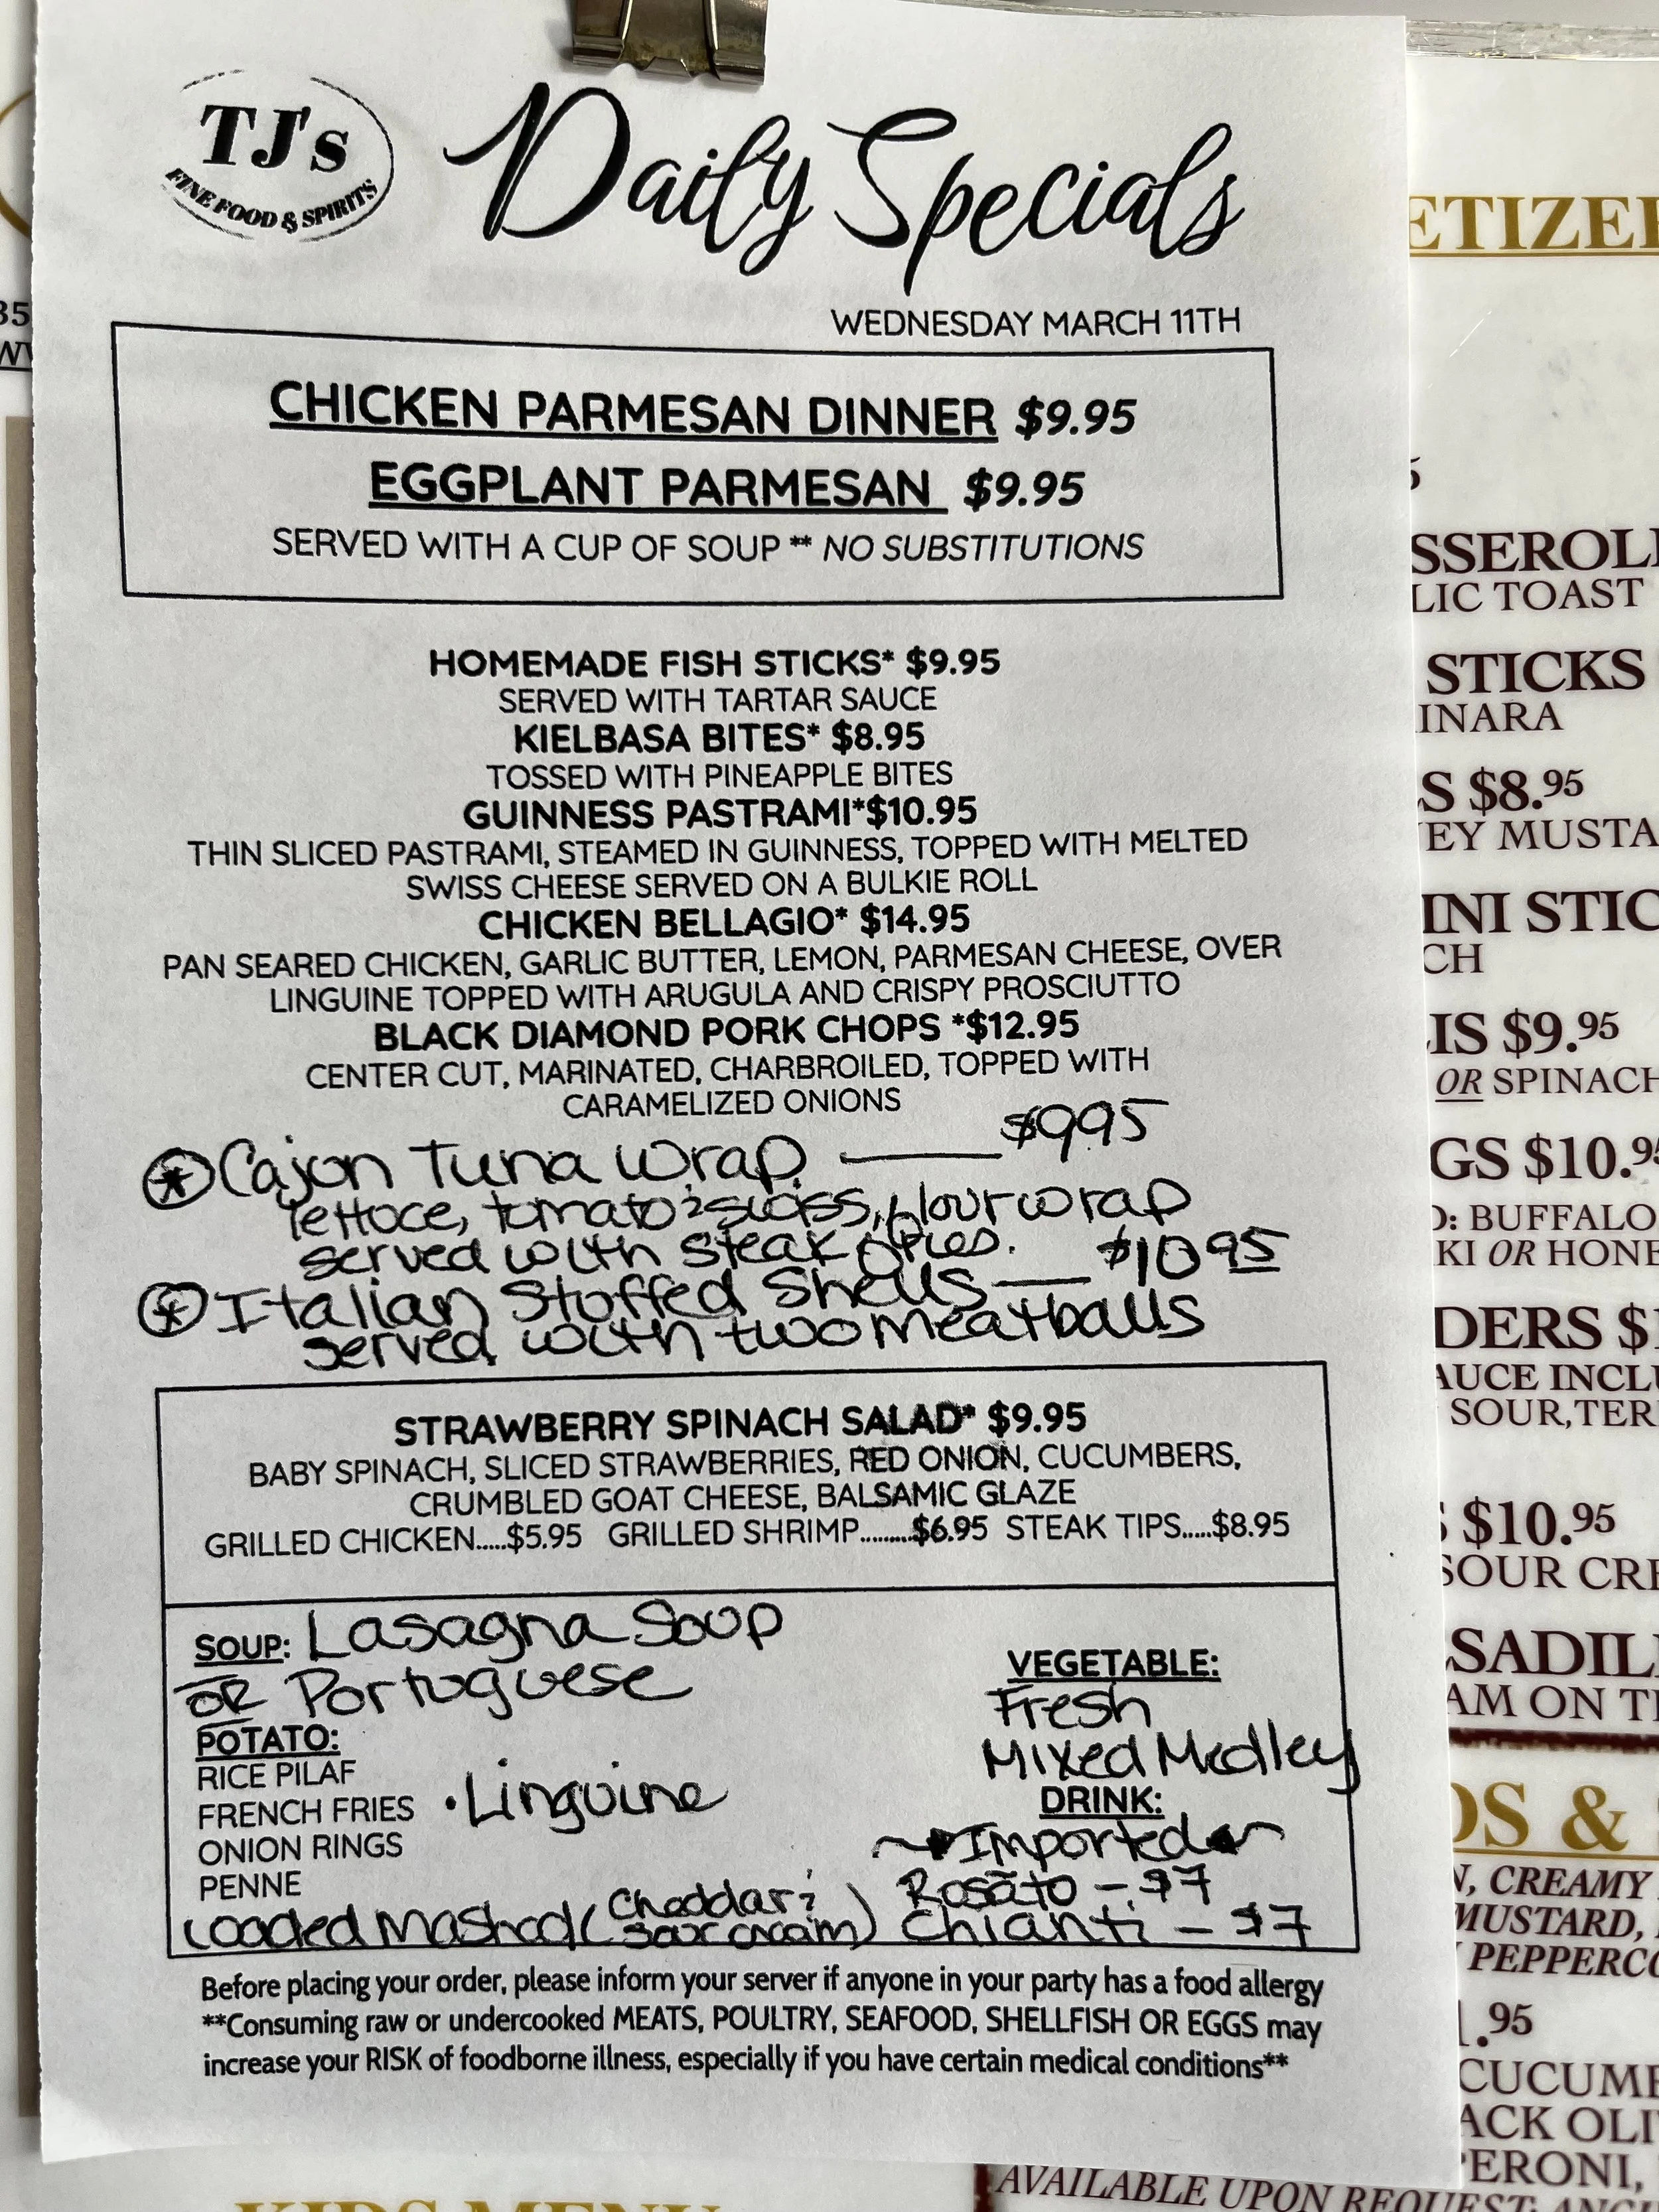 TJ's
FINE FOOD & SPIRITS
Daily Specials
WEDNESDAY MARCH 11TH
CHICKEN PARMESAN DINNER $9.95
EGGPLANT PARMESAN $9.95
SERVED WITH A CUP OF SOUP ** NO SUBSTITUTIONS
HOMEMADE FISH STICKS* $9.95
SERVED WITH TARTAR SAUCE
KIELBASA BITES* $8.95
TOSSED WITH PINEAPPLE BITES
GUINNESS PASTRAMI*$10.95
THIN SLICED PASTRAMI, STEAMED IN GUINNESS, TOPPED WITH MELTED
SWISS CHEESE SERVED ON A BULKIE ROLL
CHICKEN BELLAGIO* $14.95
PAN SEARED CHICKEN, GARLIC BUTTER, LEMON, PARMESAN CHEESE, OVER
LINGUINE TOPPED WITH ARUGULA AND CRISPY PROSCIUTTO
BLACK DIAMOND PORK CHOPS *$12.95
CENTER CUT, MARINATED, CHARBROILED, TOPPED WITH
CARAMELIZED ONIONS
* Cajun Tuna Wrap — $9.95
lettuce, tomato & swiss, flour wrap
served with steak fries.
* Italian Stuffed Shells — $10.95
served with two meatballs
STRAWBERRY SPINACH SALAD* $9.95
BABY SPINACH, SLICED STRAWBERRIES, RED ONION, CUCUMBERS,
CRUMBLED GOAT CHEESE, BALSAMIC GLAZE
GRILLED CHICKEN.....$5.95 GRILLED SHRIMP.........$6.95 STEAK TIPS.....$8.95
SOUP: Lasagna Soup
OR Portuguese
POTATO:
RICE PILAF
FRENCH FRIES
• Linguine
ONION RINGS
PENNE
Loaded Mashed (Cheddar & sour cream)
VEGETABLE:
Fresh
Mixed Medley
DRINK:
Imported
Rosato - $7
Chianti - $7
Before placing your order, please inform your server if anyone in your party has a food allergy
**Consuming raw or undercooked MEATS, POULTRY, SEAFOOD, SHELLFISH OR EGGS may
increase your RISK of foodborne illness, especially if you have certain medical conditions**
ETIZE
SSEROL
LIC TOAST
STICKS
INARA
S $8.95
EY MUSTA
INI STIC
CH
IS $9.95
OR SPINACH
GS $10.95
O: BUFFALO
KI OR HONE
DERS $1
AUCE INCLU
SOUR, TER
$10.95
SOUR CRE
SADIL
AM ON T
DS &
N, CREAMY
MUSTARD,
PEPPERCO
1.95
CUCUMB
ACK OLI
PERONI,
AVAILABLE UPON REQUEST: ANC
KIDS MENU